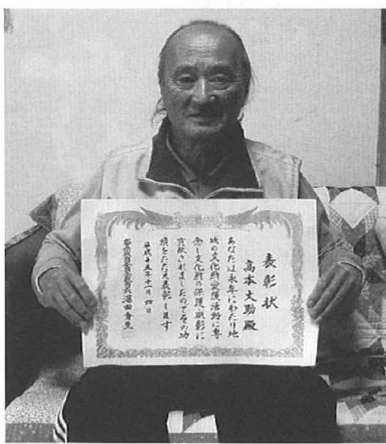 表彰状
高本大助殿
あなたは永年にわたり地
域の文化財愛護活動に専
念し文化財の保護顕彰に
貢献されましたのでその功
績をたたえ表彰します
平成十五年十一月四日